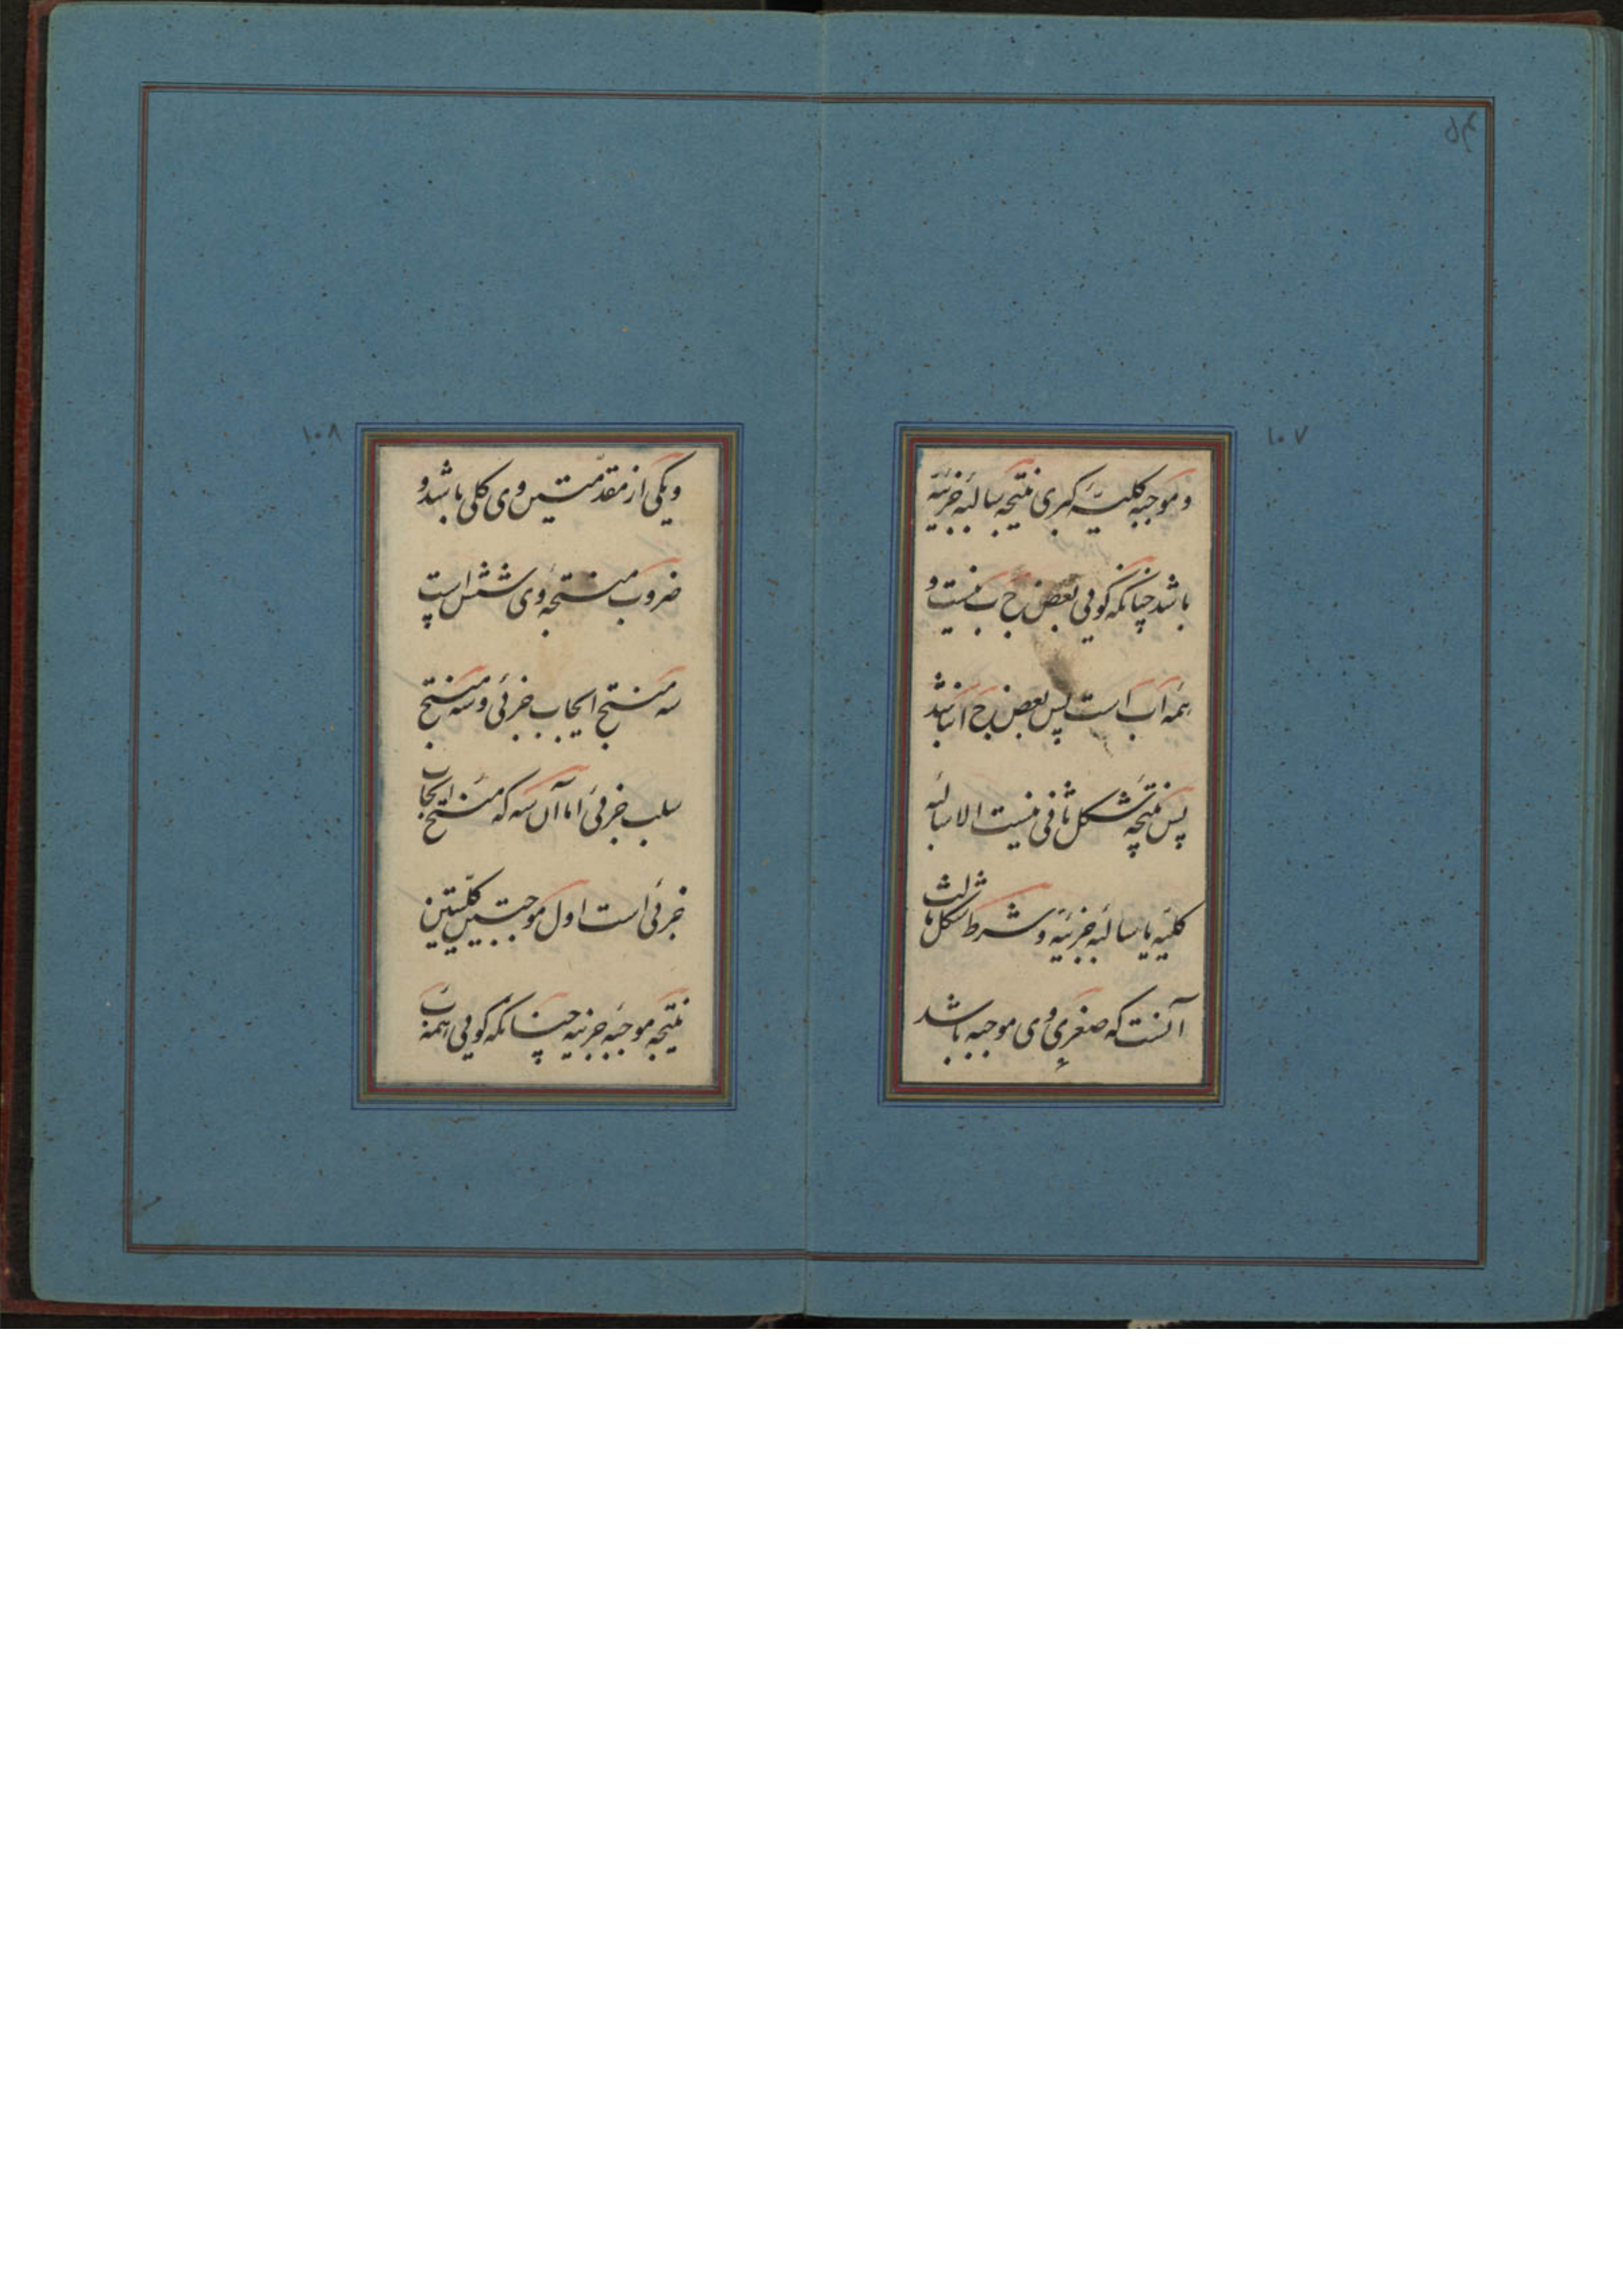 ۱۰۷
و موجبه کلیّه کبری نتیجه سالبه جزئیه
باشد چنانکه گویی بعض ج ب نیست و
همه ا ب است پس بعض ج ا نباشد
پس نتیجه شکل ثانی نیست الا سالبه
کلیه یا سالبه جزئیه و شرط شکل ثالث
آنست که صغری وی موجبه باشد
۱۰۸
و یکی از مقدّمتین وی کلی باشد و
ضروب منتجه وی شش است
سه منتج ایجاب جزئی و سه منتج
سلب جزئی اما آن سه که منتج ایجاب
جزئی است اول موجبتین کلیّتین
نتیجه موجبه جزئیه چنانکه گویی همه ب